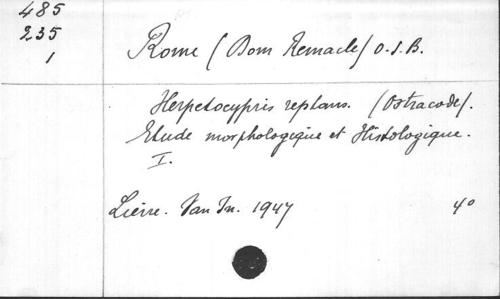 485
235
1
Rome (Dom Remacle) O.S.B.
Herpetocypris reptans. (Ostracode).
Etude morphologique et Histologique.
I.
Lierre. Van In. 1947 4°